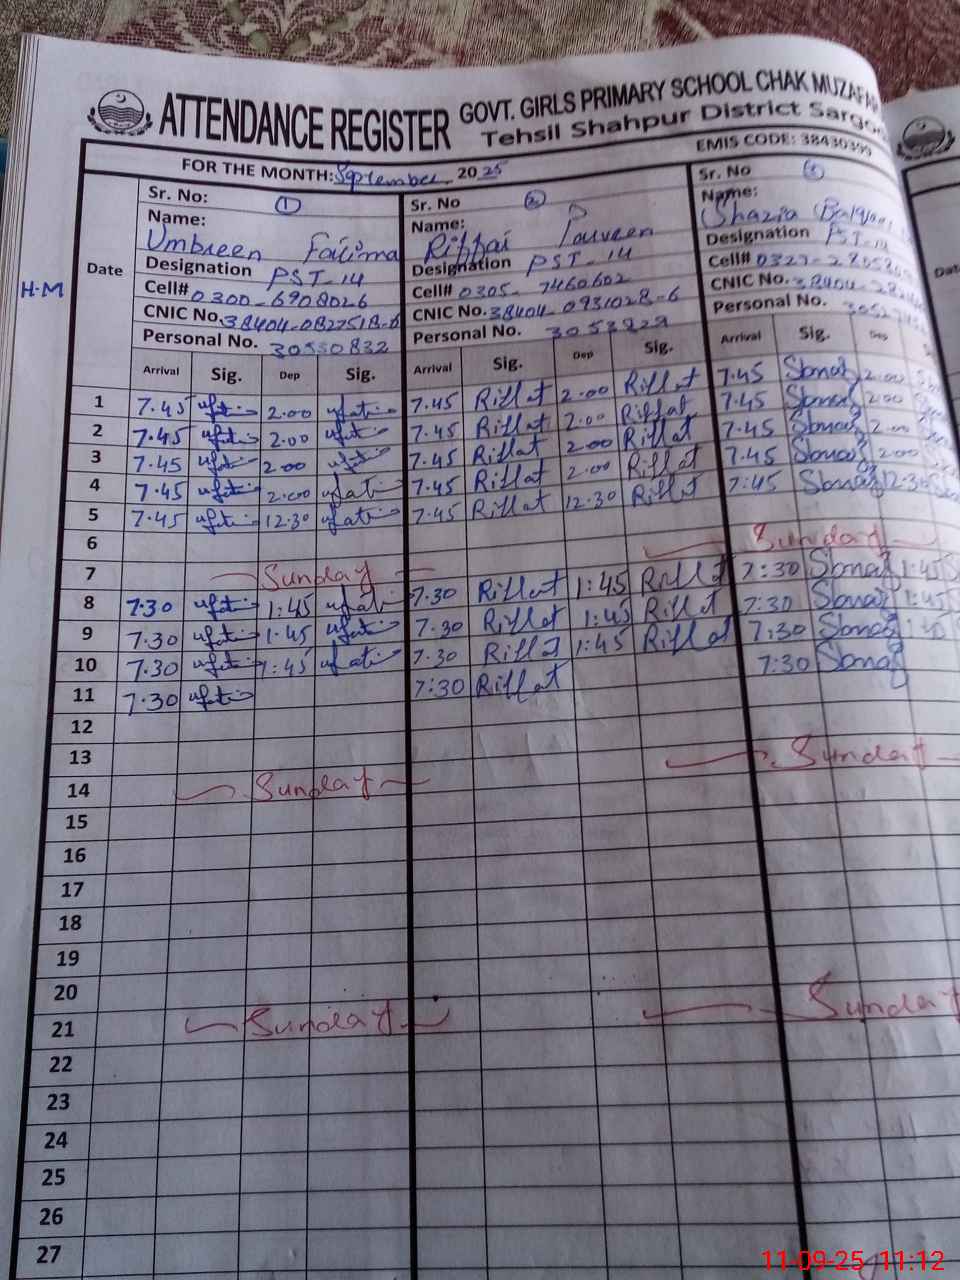 ATTENDANCE REGISTER GOVT. GIRLS PRIMARY SCHOOL CHAK MUZAFAR
Tehsil Shahpur District Sargo
EMIS CODE: 38430399
FOR THE MONTH: September 2025
H.M
Date
Sr. No: 1
Name:
Umbreen Fatima
Designation PST-14
Cell# 0300-6908026
CNIC No. 38404-0827518-6
Personal No. 30550832
Sr. No 2
Name:
Riffat Parveen
Designation PST-14
Cell# 0305-7460602
CNIC No. 38404-0931028-6
Personal No. 3053929
Sr. No 3
Name:
Shazia
Designation PST-14
Cell# 0327-
CNIC No. 38404-
Personal No.
Arrival Sig. Dep Sig. Arrival Sig. Dep Sig. Arrival Sig. Dep
1 7.45 2.00 7.45 Riffat 2.00 Riffat 7.45 Sbnaz 2.00
2 7.45 2.00 7.45 Riffat 2.00 Riffat 7.45 Sbnaz 2.00
3 7.45 2.00 7.45 Riffat 2.00 Riffat 7.45 Sbnaz 2.00
4 7.45 2.00 7.45 Riffat 2.00 Riffat 7.45 Sbnaz 2.00
5 7.45 12.30 7.45 Riffat 12.30 Riffat 7:45 Sbnaz 12:30
6
7 Sunday Sunday
8 7.30 1:45 7.30 Riffat 1:45 Riffat 7:30 Sbnaz 1:45
9 7.30 1.45 7.30 Riffat 1:45 Riffat 7:30 Sbnaz 1:45
10 7.30 1:45 7.30 Riffat 1:45 Riffat 7:30 Sbnaz 1:45
11 7.30 7:30 Riffat 7:30 Sbnaz
12
13
14 Sunday Sunday
15
16
17
18
19
20
21 Sunday Sunday
22
23
24
25
26
27
11-09-25 11:12